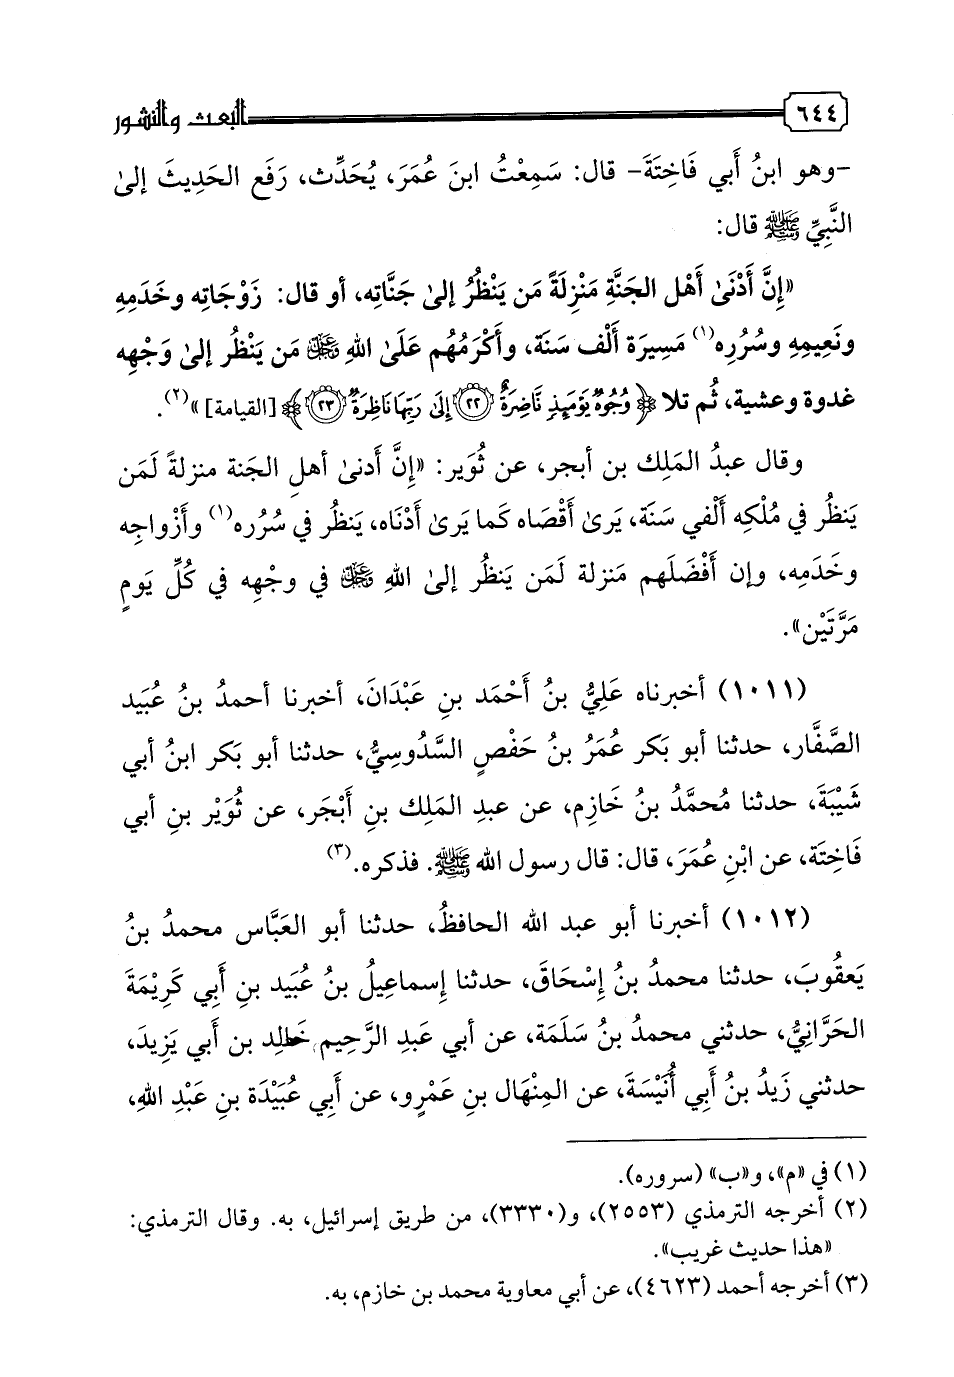 ٦٤٤ البعث والنشور
-وهو ابنُ أَبي فَاخِتَةَ- قال: سَمِعْتُ ابنَ عُمَرَ، يُحَدِّث، رَفَع الحَدِيثَ إلىٰ
النَّبِيِّ ﷺ قال:
«إِنَّ أَدْنَىٰ أَهْل الجَنَّةِ مَنْزِلَةً مَن يَنْظُرُ إلىٰ جَنَّاتِه، أو قال: زَوْجَاتِه وخَدَمِهِ
ونَعِيمِهِ وسُرُرِه(١) مَسِيرَة أَلْف سَنَة، وأَكْرَمُهُم عَلَىٰ اللهِ ﷻ مَن يَنْظُر إلىٰ وَجْهِه
غدوة وعشية، ثُم تلا ﴿وُجُوهٌ يَوْمَئِذٍ نَّاضِرَةٌ ٢٢ إِلَىٰ رَبِّهَا نَاظِرَةٌ ٢٣﴾ [القيامة]»(٢).
وقال عبدُ المَلِك بن أبجر، عن ثُوَير: «إِنَّ أَدنىٰ أهلِ الجَنة منزلةً لَمَن
يَنظُر في مُلْكِه أَلْفي سَنَة، يَرىٰ أَقْصَاه كَما يَرىٰ أَدْنَاه، يَنظُر في سُرُره(١) وأَزْواجِه
وخَدَمِه، وإن أَفْضَلَهم مَنزلة لَمَن يَنظُر إلىٰ اللهِ ﷻ في وجْهِه في كُلِّ يَومٍ
مَرَّتَيْن».
(١٠١١) أخبرناه عَلِيُّ بنُ أَحْمَد بنِ عَبْدَانَ، أخبرنا أحمدُ بنُ عُبَيد
الصَّفَّار، حدثنا أبو بَكر عُمَرُ بنُ حَفْصٍ السَّدُوسِيُّ، حدثنا أبو بَكر ابنُ أبي
شَيْبَةَ، حدثنا مُحمَّدُ بنُ خَازِم، عن عبدِ المَلِك بنِ أَبْجَر، عن ثُوَيْر بنِ أبي
فَاخِتَة، عن ابْنِ عُمَرَ، قال: قال رسول الله ﷺ. فذكره.(٣)
(١٠١٢) أخبرنا أبو عبد الله الحافظُ، حدثنا أبو العَبَّاس محمدُ بنُ
يَعقُوبَ، حدثنا محمدُ بنُ إِسْحَاقَ، حدثنا إِسماعِيلُ بنُ عُبَيد بنِ أَبِي كَرِيْمَةَ
الحَرَّانِيُّ، حدثني محمدُ بنُ سَلَمَة، عن أبي عَبدِ الرَّحِيم خَالِد بن أبي يَزِيدَ،
حدثني زَيدُ بنُ أَبِي أُنَيْسَةَ، عن المِنْهَال بنِ عَمْرٍو، عن أَبِي عُبَيْدَة بنِ عَبْدِ اللهِ،
(١) في «م»، و«ب» (سروره).
(٢) أخرجه الترمذي (٢٥٥٣)، و(٣٣٣٠)، من طريق إسرائيل، به. وقال الترمذي:
«هذا حديث غريب».
(٣) أخرجه أحمد (٤٦٢٣)، عن أبي معاوية محمد بن خازم، به.